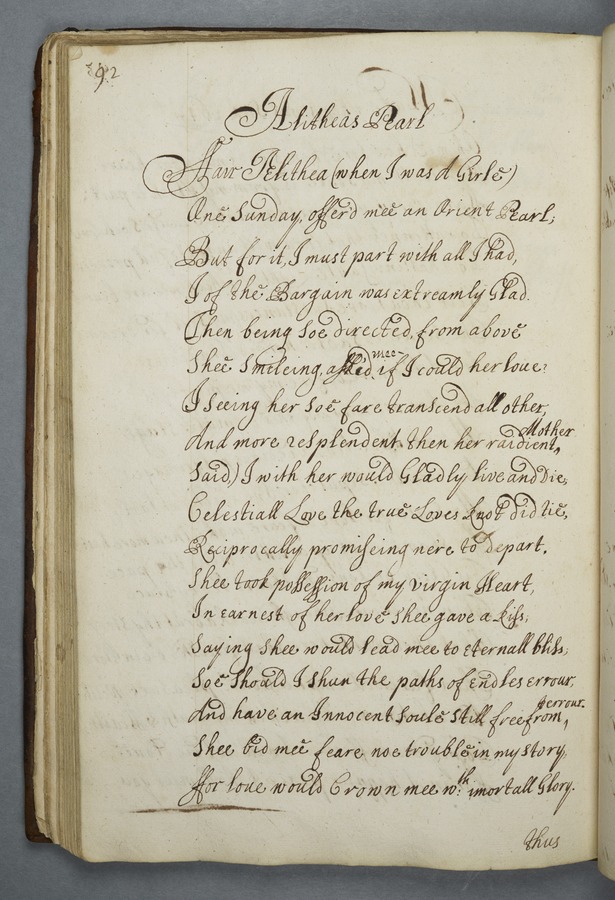 92
Alitheas Pearl
Fair Alithea (when I was A Girle)
One Sunday, offerd mee an Orient Pearl;
But for it, I must part with all I had,
I of the Bargain was extreamly Glad.
Then being Soe directed, from above
Shee Smileing, asked, mee if I could her love?
I seeing her Soe fare transcend all other,
And more resplendent then her raidient, Mother
Said,) I with her would Gladly live and Die;
Celestiall Love the true Loves knot did tie,
Reciprocally promiseing nere to depart.
Shee took possession of my virgin Heart,
In earnest of her love Shee gave a kiss;
Saying Shee would lead mee to eternall bliss;
Soe Should I Shun the paths of Endles errour,
And have an Innocent Soule Still free from, terrour.
Shee bid mee feare noe trouble in my story,
ffor love would Crown mee wth: imortall Glory.
thus